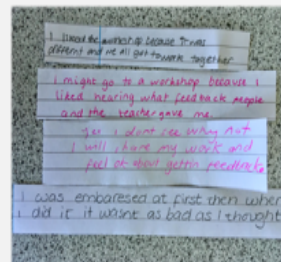 I liked the workshop because it was
different and we all got to work together
I might go to a workshop because I
liked hearing what feedback people
and the teacher gave me.
Yes I dont see why not
I will share my work and
feel ok about gettin feedback
I was embaresed at first then when
I did it it wasnt as bad as I thought